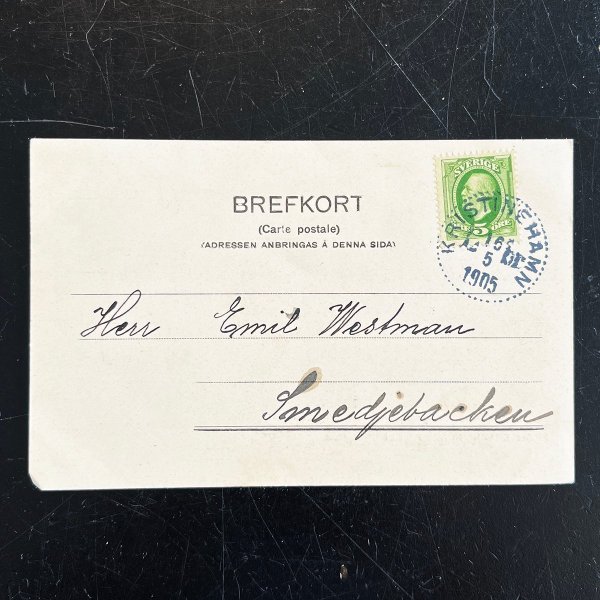 SVERIGE
5 ÖRE
KRISTINEHAMN
5
1905
BREFKORT
(Carte postale)
(ADRESSEN ANBRINGAS Å DENNA SIDA)
Herr Emil Westman
Smedjebacken